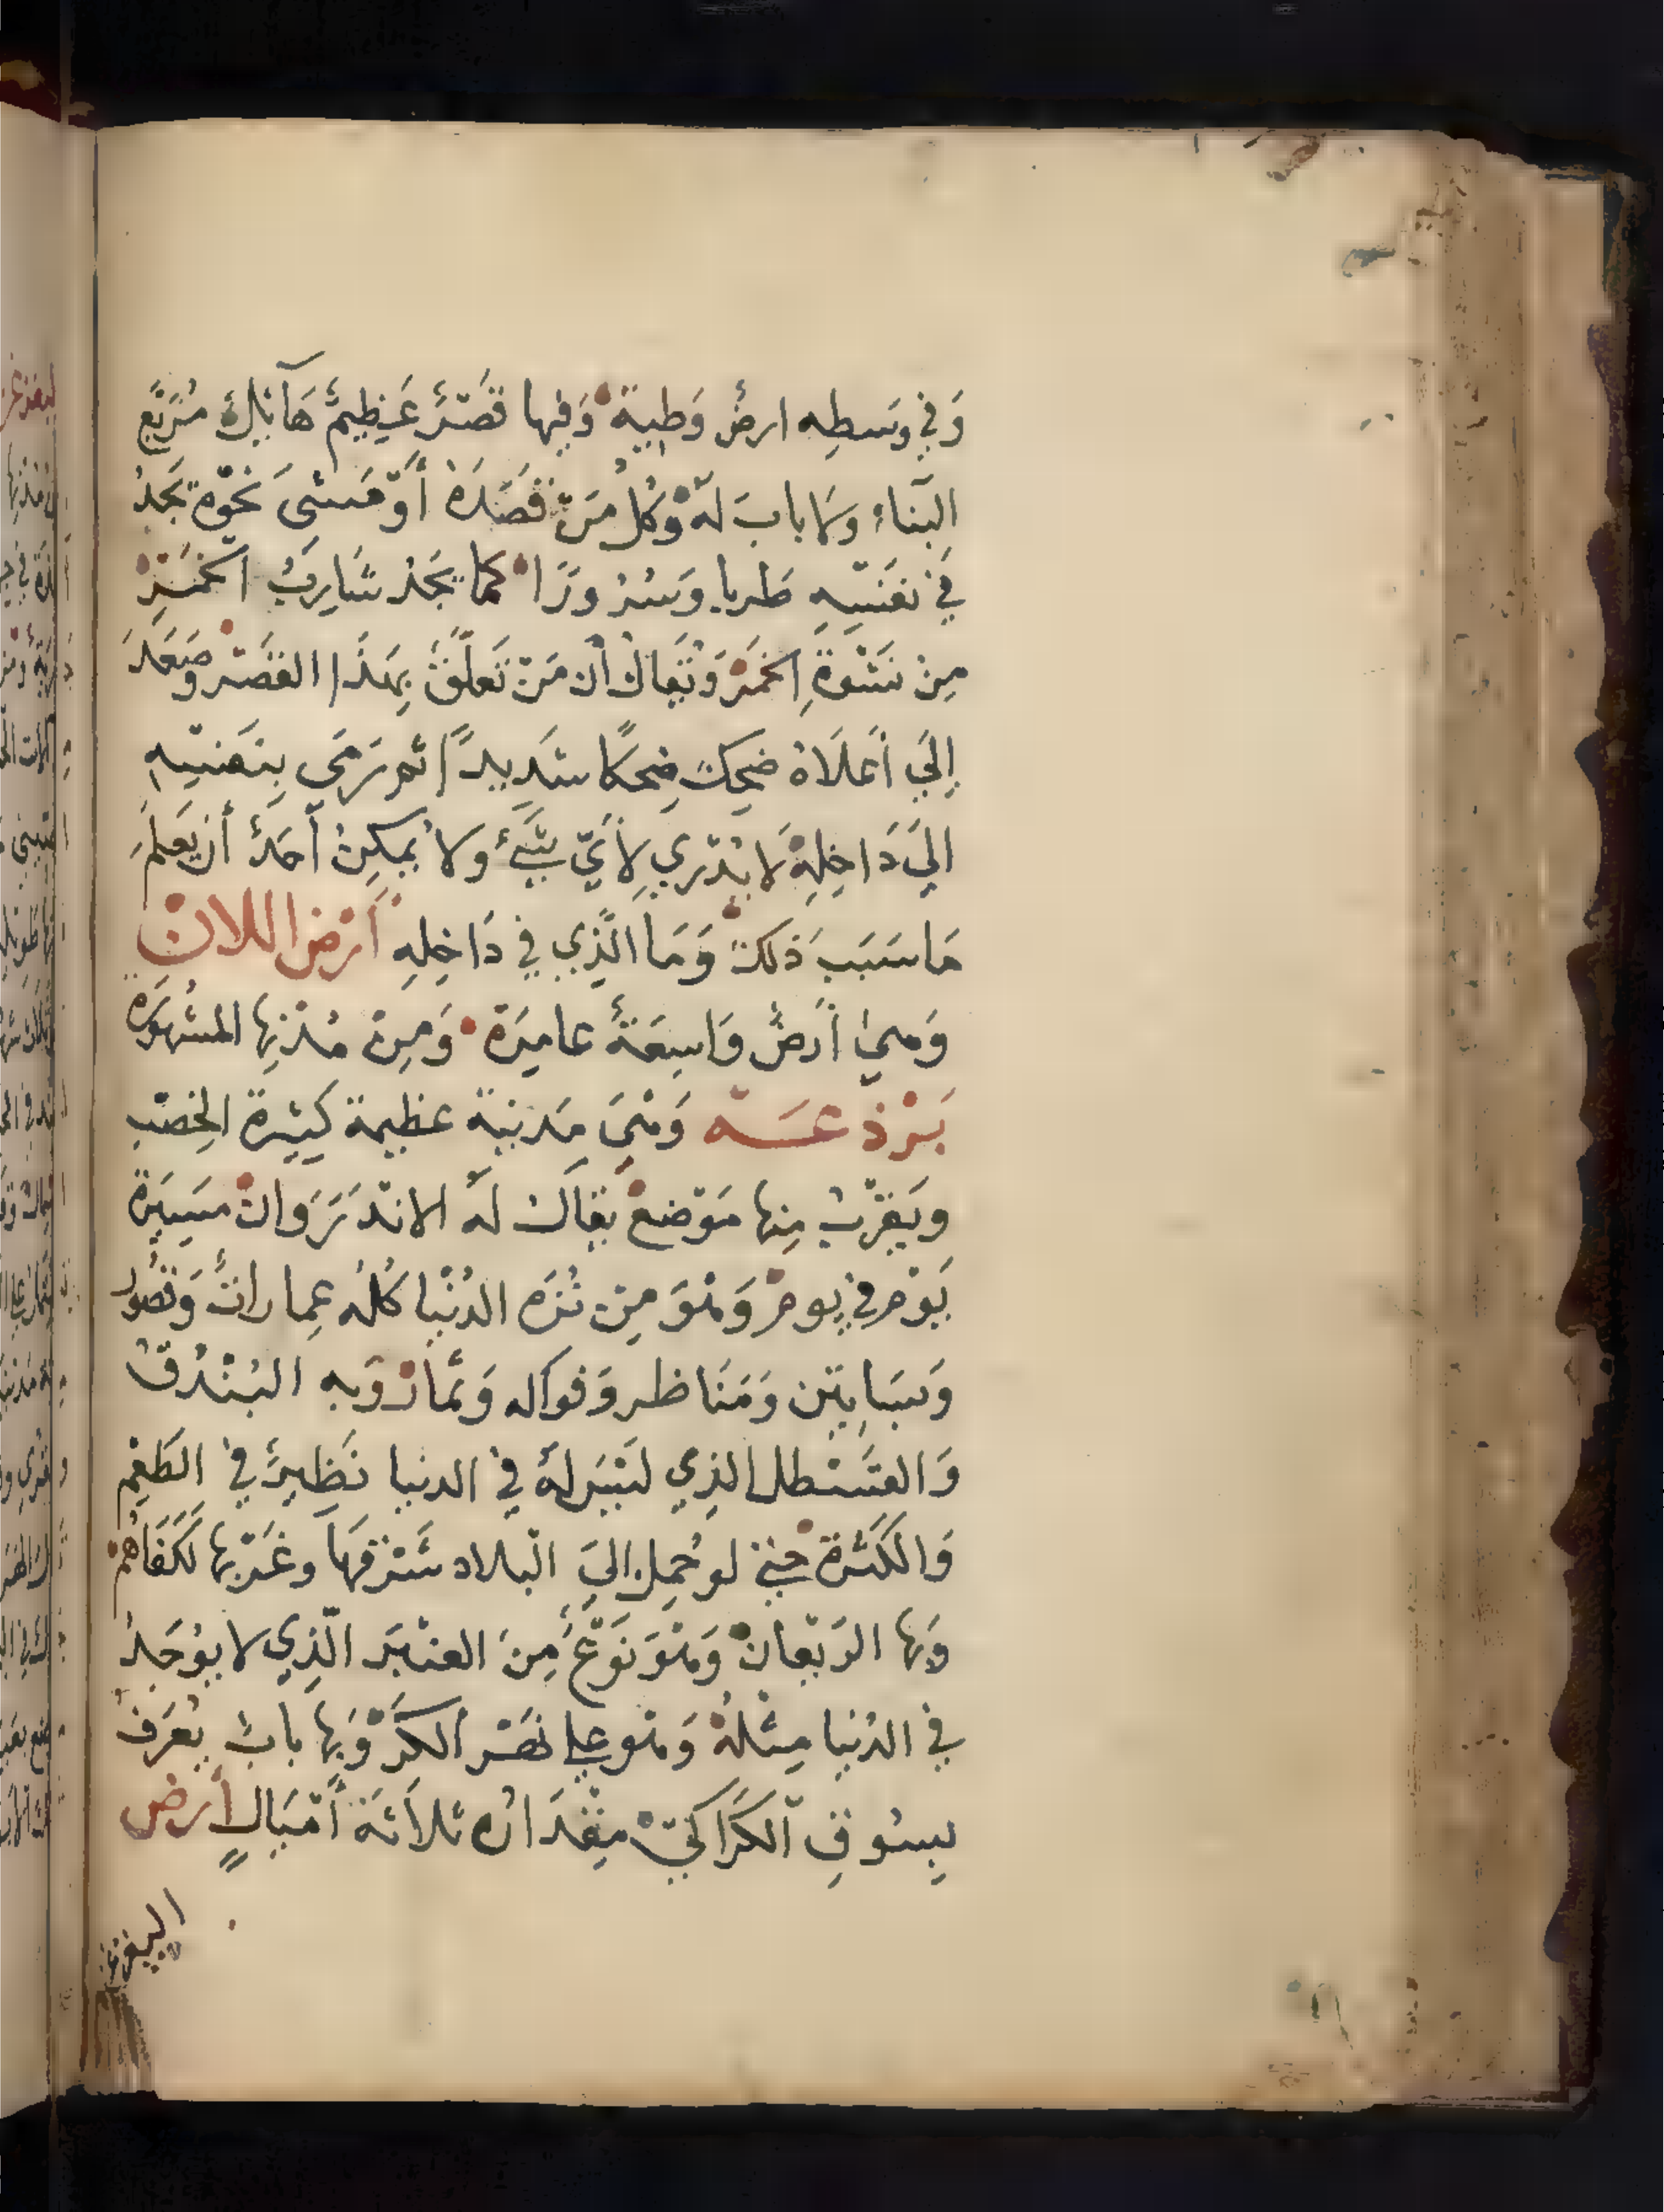 وَفِي وَسطِه ارضٌ وَطِية وَفِيها قَصْرٌ عَظِيمٌ هَآئِلٌ مُرَبَّع
البِنَاء وَلا بابَ لَهُ وَكُلُّ مَنْ قَصَدَهُ أَوْ مَشَى نَحْوَهُ يَجدُ
فِي نفسِهِ طَربا وَسُرُورًا كما يَجدُ شَارِبُ الخَمْرِ
مِنْ نَشْوَةِ الخمَرْ وَيُقَالُ أن مَنْ تَعلَّقَ بِهَذَا القَصْر وصَعَدَ
إِلَي أَعلَاهُ ضَحِكَ ضِحكًا شَدِيدًا ثم يَرمَى بِنَفسِهِ
الَي دَاخِلِهْ لَا يُدْرَي لِأَيّ شَيْءٌ وَلا يُمكِنُ آحَدٌ أن يَعلَمَ
مَا سَبَبَ ذَلك وَمَا الَّذِي فِي دَاخِلِهِ أَرْض اللان
وَهيَ أَرضٌ وَاسِعَةٌ عامِرَة وَمِنْ مُدُنِهَا المشهورَة
بَرْذعَة وَهْيَ مَدينة عظيمة كَثِيرة الخِصْب
ويَقرُبُ مِنها مَوْضعٌ يقالُ لَهُ الاندَرَوان مَسِيرَة
يَوْم فِي يوم وَهْوَ مِن نُزَه الدُنْيا كُلُه عِماراتٌ وَقصُور
وَبسَاتِين وَمَنَاظر وَفواكه وَثمار وَبه البُنْدُق
وَالقَسْطل الذِي ليْسَ لهُ فِي الدنيا نَظِيرٌ فِي الطَعْم
وَالكَثْرة حتي لو حُمِل الَي الْبلاد شَرْقهَا وغَرْبها لَكَفَاهُمْ
وَبها الرَيْعانُ وَهْوَ نَوْعٌ مِنَ العنْبَر الَّذِي لا يوُجَدُ
فِي الدُنيا مِثْلهُ وَهْو علي نَهْر الكُرِّ وَبها بابٌ يُعْرَفُ
بِسُوقِ الكُرَاكِيّ مِقْدَارُه ثلاَثَةَ أَمْيَالٍ أَرض